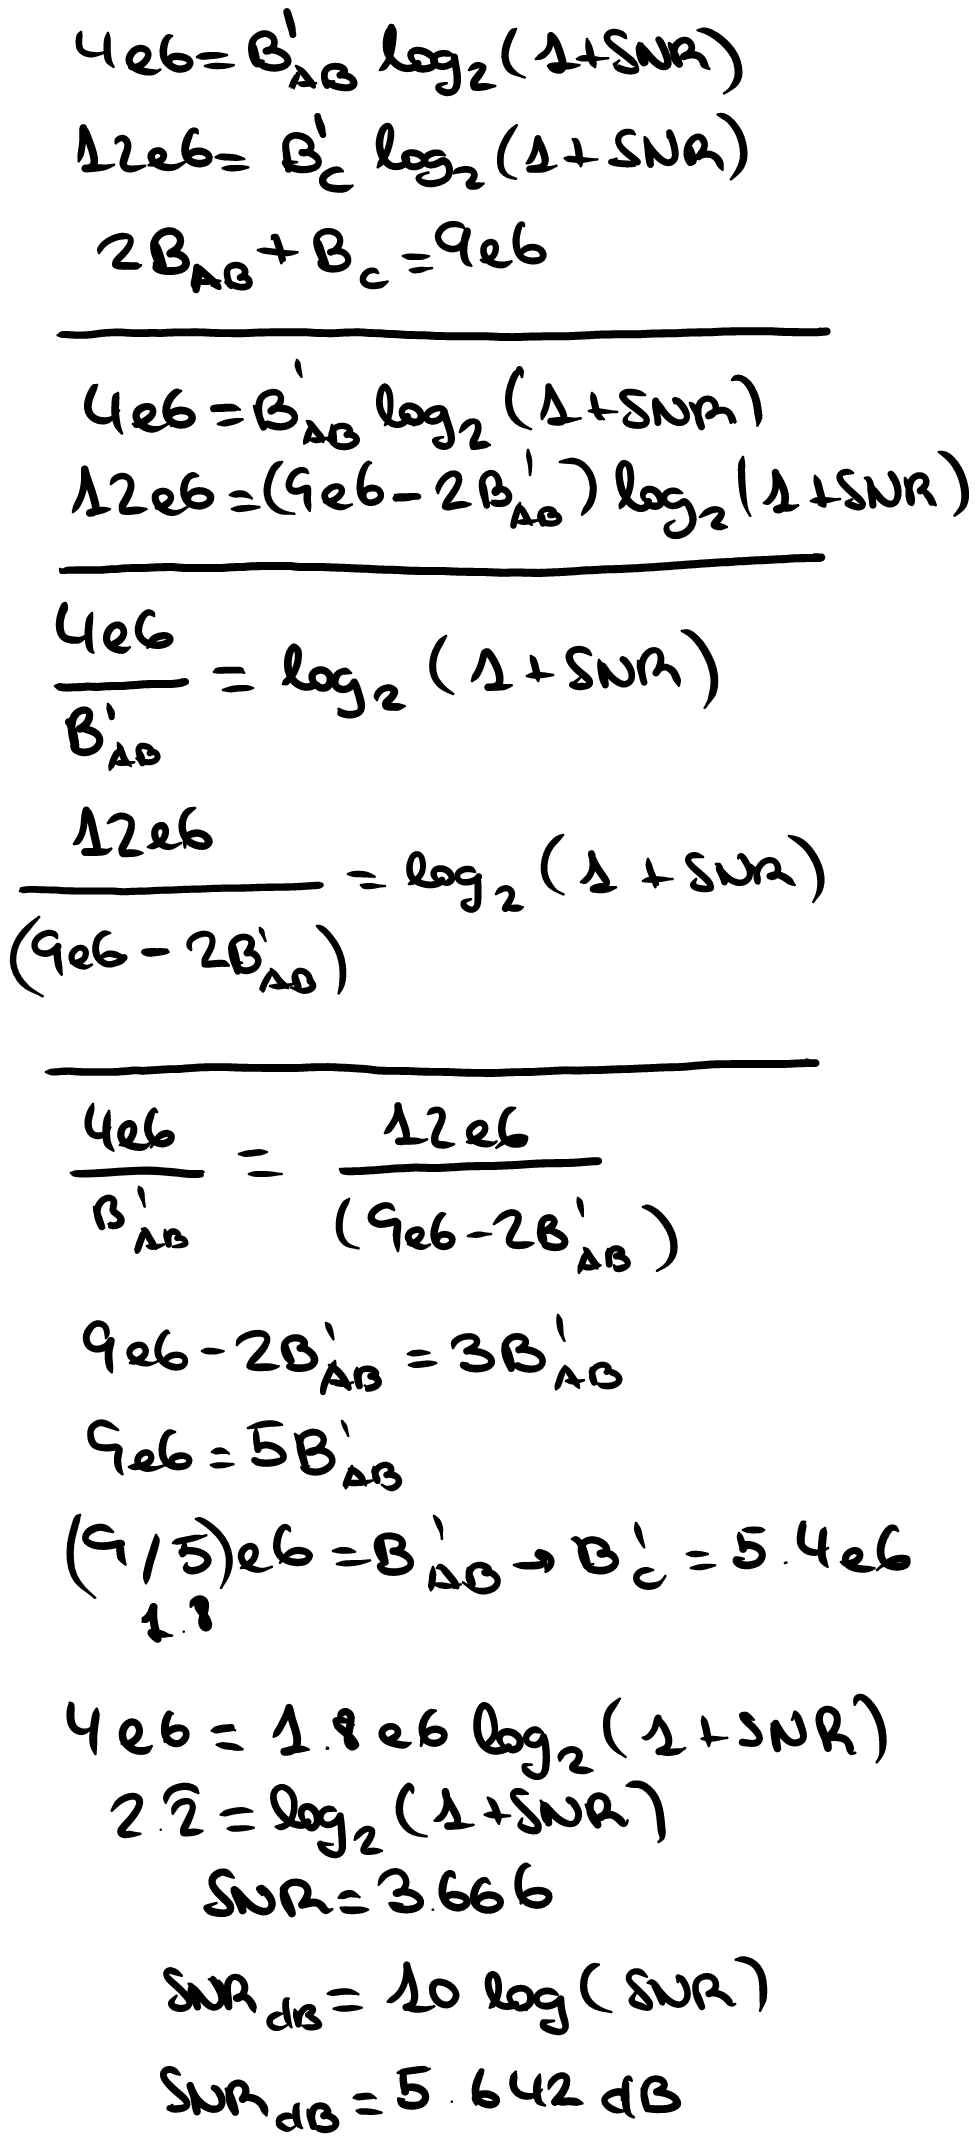 4e6 = B'_AB log_2 (1+SNR)
12e6 = B'_C log_2 (1+SNR)
2B_AB + B_C = 9e6
4e6 = B'_AB log_2 (1+SNR)
12e6 = (9e6 - 2B'_AB) log_2 (1+SNR)
4e6 / B'_AB = log_2 (1+SNR)
12e6 / (9e6 - 2B'_AB) = log_2 (1+SNR)
4e6 / B'_AB = 12e6 / (9e6 - 2B'_AB)
9e6 - 2B'_AB = 3B'_AB
9e6 = 5B'_AB
(9/5)e6 = B'_AB → B'_C = 5.4e6
1.8
4e6 = 1.8e6 log_2 (1+SNR)
2.2̂ = log_2 (1+SNR)
SNR = 3.666
SNR_dB = 10 log(SNR)
SNR_dB = 5.642 dB